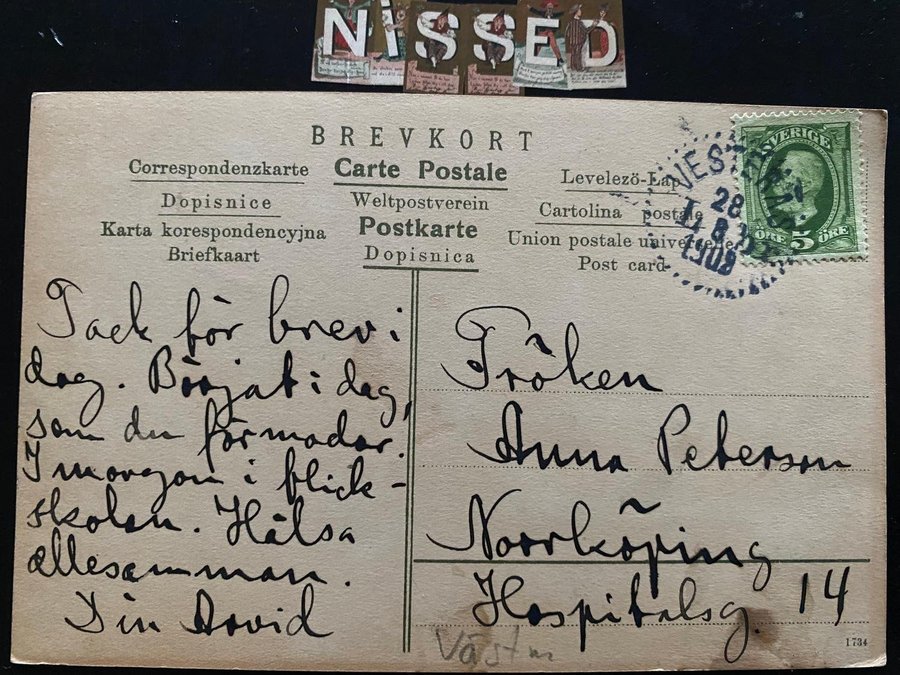 NISSED
BREVKORT
Correspondenzkarte
Carte Postale
Levelezö-Lap
Dopisnice
Weltpostverein
Cartolina postale
Karta korespondencyjna
Postkarte
Union postale universelle
Briefkaart
Dopisnica
Post card
SVERIGE
ÖRE 5 ÖRE
VESTERÅS
28
1908
Tack för brev i
dag. Börjat i dag,
som du förmodar.
I morgon i flick-
skolan. Hälsa
allesamman.
Din Arvid
Fröken
Anna Peterson
Norrköping
Hospitalsg. 14
Västm
1734